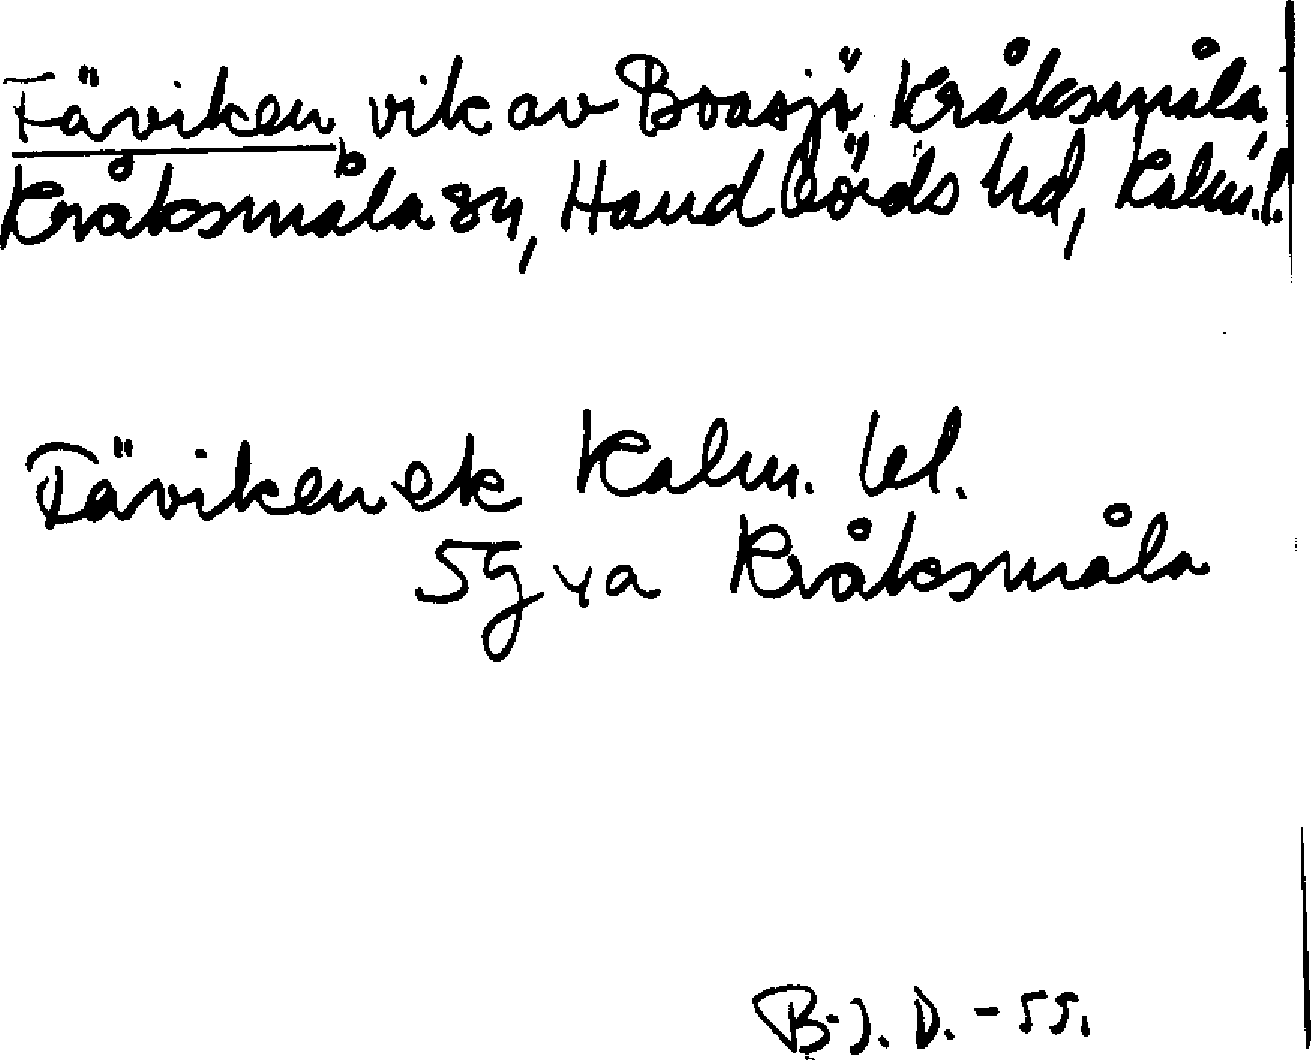 Fäviken, vik av Boasjö, Kråksmåla,
Kråksmåla sn, Handbörds hd, Kalm. l.
Fäviken ek Kalm. l.
5g ya Kråksmåla
B. J. D. - 55.